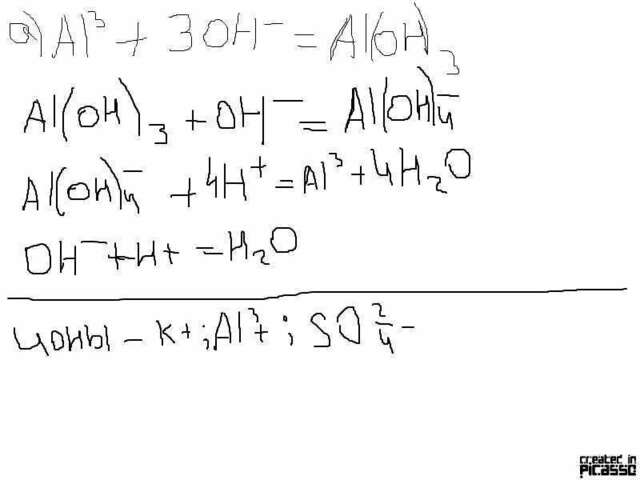 а) Al³ + 3OH⁻ = Al(OH)₃
Al(OH)₃ + OH⁻ = Al(OH)₄⁻
Al(OH)₄⁻ + 4H⁺ = Al³ + 4H₂O
OH⁻ + H+ = H₂O
ионы – K+; Al³⁺; SO₄²⁻
created in
PICASSO